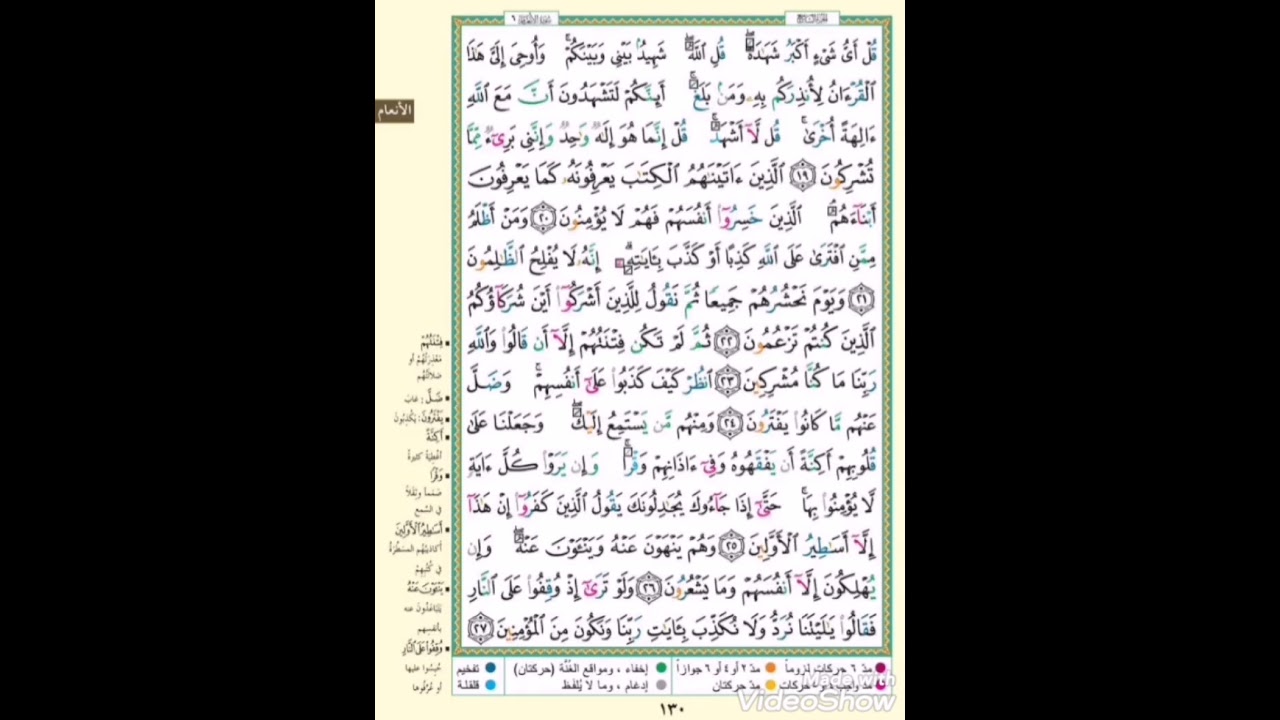 سورة الأنعام ٦
الجزء السابع
قُلْ أَىُّ شَىْءٍ أَكْبَرُ شَهَٰدَةً ۖ قُلِ ٱللَّهُ ۖ شَهِيدٌۢ بَيْنِى وَبَيْنَكُمْ ۚ وَأُوحِىَ إِلَىَّ هَٰذَا
ٱلْقُرْءَانُ لِأُنذِرَكُم بِهِۦ وَمَنۢ بَلَغَ ۚ أَئِنَّكُمْ لَتَشْهَدُونَ أَنَّ مَعَ ٱللَّهِ
ءَالِهَةً أُخْرَىٰ ۚ قُل لَّآ أَشْهَدُ ۚ قُلْ إِنَّمَا هُوَ إِلَٰهٌ وَٰحِدٌ وَإِنَّنِى بَرِىٓءٌ مِّمَّا
تُشْرِكُونَ ١٩ ٱلَّذِينَ ءَاتَيْنَٰهُمُ ٱلْكِتَٰبَ يَعْرِفُونَهُۥ كَمَا يَعْرِفُونَ
أَبْنَآءَهُمُ ۘ ٱلَّذِينَ خَسِرُوٓا۟ أَنفُسَهُمْ فَهُمْ لَا يُؤْمِنُونَ ٢٠ وَمَنْ أَظْلَمُ
مِمَّنِ ٱفْتَرَىٰ عَلَى ٱللَّهِ كَذِبًا أَوْ كَذَّبَ بِـَٔايَٰتِهِۦٓ ۗ إِنَّهُۥ لَا يُفْلِحُ ٱلظَّٰلِمُونَ
٢١ وَيَوْمَ نَحْشُرُهُمْ جَمِيعًا ثُمَّ نَقُولُ لِلَّذِينَ أَشْرَكُوٓا۟ أَيْنَ شُرَكَآؤُكُمُ
ٱلَّذِينَ كُنتُمْ تَزْعُمُونَ ٢٢ ثُمَّ لَمْ تَكُن فِتْنَتُهُمْ إِلَّآ أَن قَالُوا۟ وَٱللَّهِ
رَبِّنَا مَا كُنَّا مُشْرِكِينَ ٢٣ ٱنظُرْ كَيْفَ كَذَبُوا۟ عَلَىٰٓ أَنفُسِهِمْ ۚ وَضَلَّ
عَنْهُم مَّا كَانُوا۟ يَفْتَرُونَ ٢٤ وَمِنْهُم مَّن يَسْتَمِعُ إِلَيْكَ ۖ وَجَعَلْنَا عَلَىٰ
قُلُوبِهِمْ أَكِنَّةً أَن يَفْقَهُوهُ وَفِىٓ ءَاذَانِهِمْ وَقْرًا ۚ وَإِن يَرَوْا۟ كُلَّ ءَايَةٍ
لَّا يُؤْمِنُوا۟ بِهَا ۚ حَتَّىٰٓ إِذَا جَآءُوكَ يُجَٰدِلُونَكَ يَقُولُ ٱلَّذِينَ كَفَرُوٓا۟ إِنْ هَٰذَآ
إِلَّآ أَسَٰطِيرُ ٱلْأَوَّلِينَ ٢٥ وَهُمْ يَنْهَوْنَ عَنْهُ وَيَنْـَٔوْنَ عَنْهُ ۖ وَإِن
يُهْلِكُونَ إِلَّآ أَنفُسَهُمْ وَمَا يَشْعُرُونَ ٢٦ وَلَوْ تَرَىٰٓ إِذْ وُقِفُوا۟ عَلَى ٱلنَّارِ
فَقَالُوا۟ يَٰلَيْتَنَا نُرَدُّ وَلَا نُكَذِّبَ بِـَٔايَٰتِ رَبِّنَا وَنَكُونَ مِنَ ٱلْمُؤْمِنِينَ ٢٧
الأنعام
فِتْنَتُهُمْ
مَعْذِرَتُهُمْ أو
ضَلَالَتُهُم
ضَلَّ : غابَ
يَفْتَرُونَ : يَكْذِبُونَ
أَكِنَّةً
أغْطِيَةً كثيرةً
وَقْرًا
صَمَماً وثِقَلاً
في السَّمع
أَسَٰطِيرُ ٱلْأَوَّلِينَ
أكاذيبُهُم المسَطَّرَةُ
في كُتُبِهِمْ
يَنْـَٔوْنَ عَنْهُ
يَتَباعَدُونَ عنه
بأنفسِهم
وُقِفُوا۟ عَلَى ٱلنَّارِ
حُبِسُوا عليها
أو عُرِّفُوها
مدّ ٦ حركات لزوماً مدّ ٢ أو ٤ أو ٦ جوازاً إخفاء ، ومواقع الغُنَّة (حركتان) تفخيم
مدّ واجب ٤ أو ٥ حركات مدّ حركتان إدغام ، وما لا يُلفَظ قلقلة
١٣٠
Made with
VideoShow